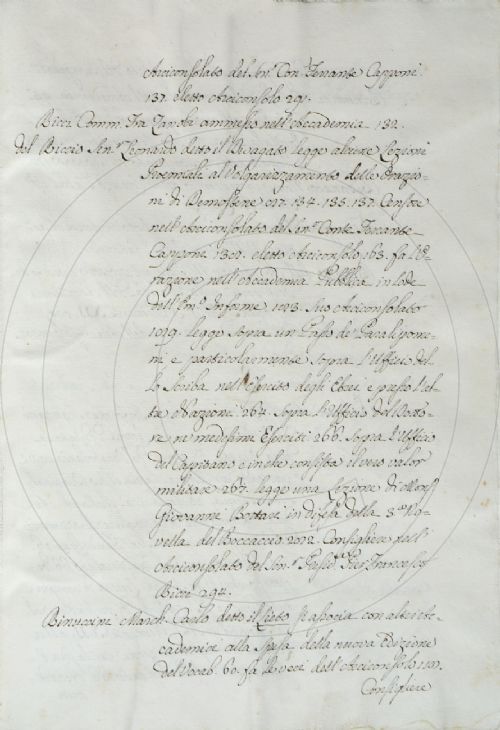 Arciconsolato del Sen.r Con. Ferrante Capponi
137. eletto Arciconsolo 291.
Ricci Comm. Fra ammesso nell'Accademia 132.
del Riccio Sen.r Leonardo detto il legge alcune Lezioni
Proemiali al Volgarizzamento delle Orazio-
ni di Demostene 134. 135. 137. Censore
nell'Arciconsolato del Sen.r Conte Ferrante
Capponi eletto Arciconsolo 163. fa l'O-
razione nell'Accademia Pubblica in lode
dell' Suo Arciconsolato
legge sopra un Passo de Paralipome-
ni e particolarmente sopra l'Uffici del
lo Scriba nell'Esercito degli Ebrei e presso l'al-
tre Nazioni 264. sopra l'Uffizio del Dotto-
re ne medesimi Eserciti 266. sopra l'Uffizio
del Capitano e in che consista il vero valor
militare 267. legge una Lezione di Mons.
Giovanni Bottari in difesa della 3.a No-
vella del Boccaccio Consigliere dell'
Arciconsolato del Sen.r Pier Francesco
Ricci 294.
Rinuccini March. Carlo detto il Lieto si associa con altri Ac-
cademici alla spesa della nuova Edizione
del Vocab. 60. fa le veci dell'Arciconsolo
Consigliere